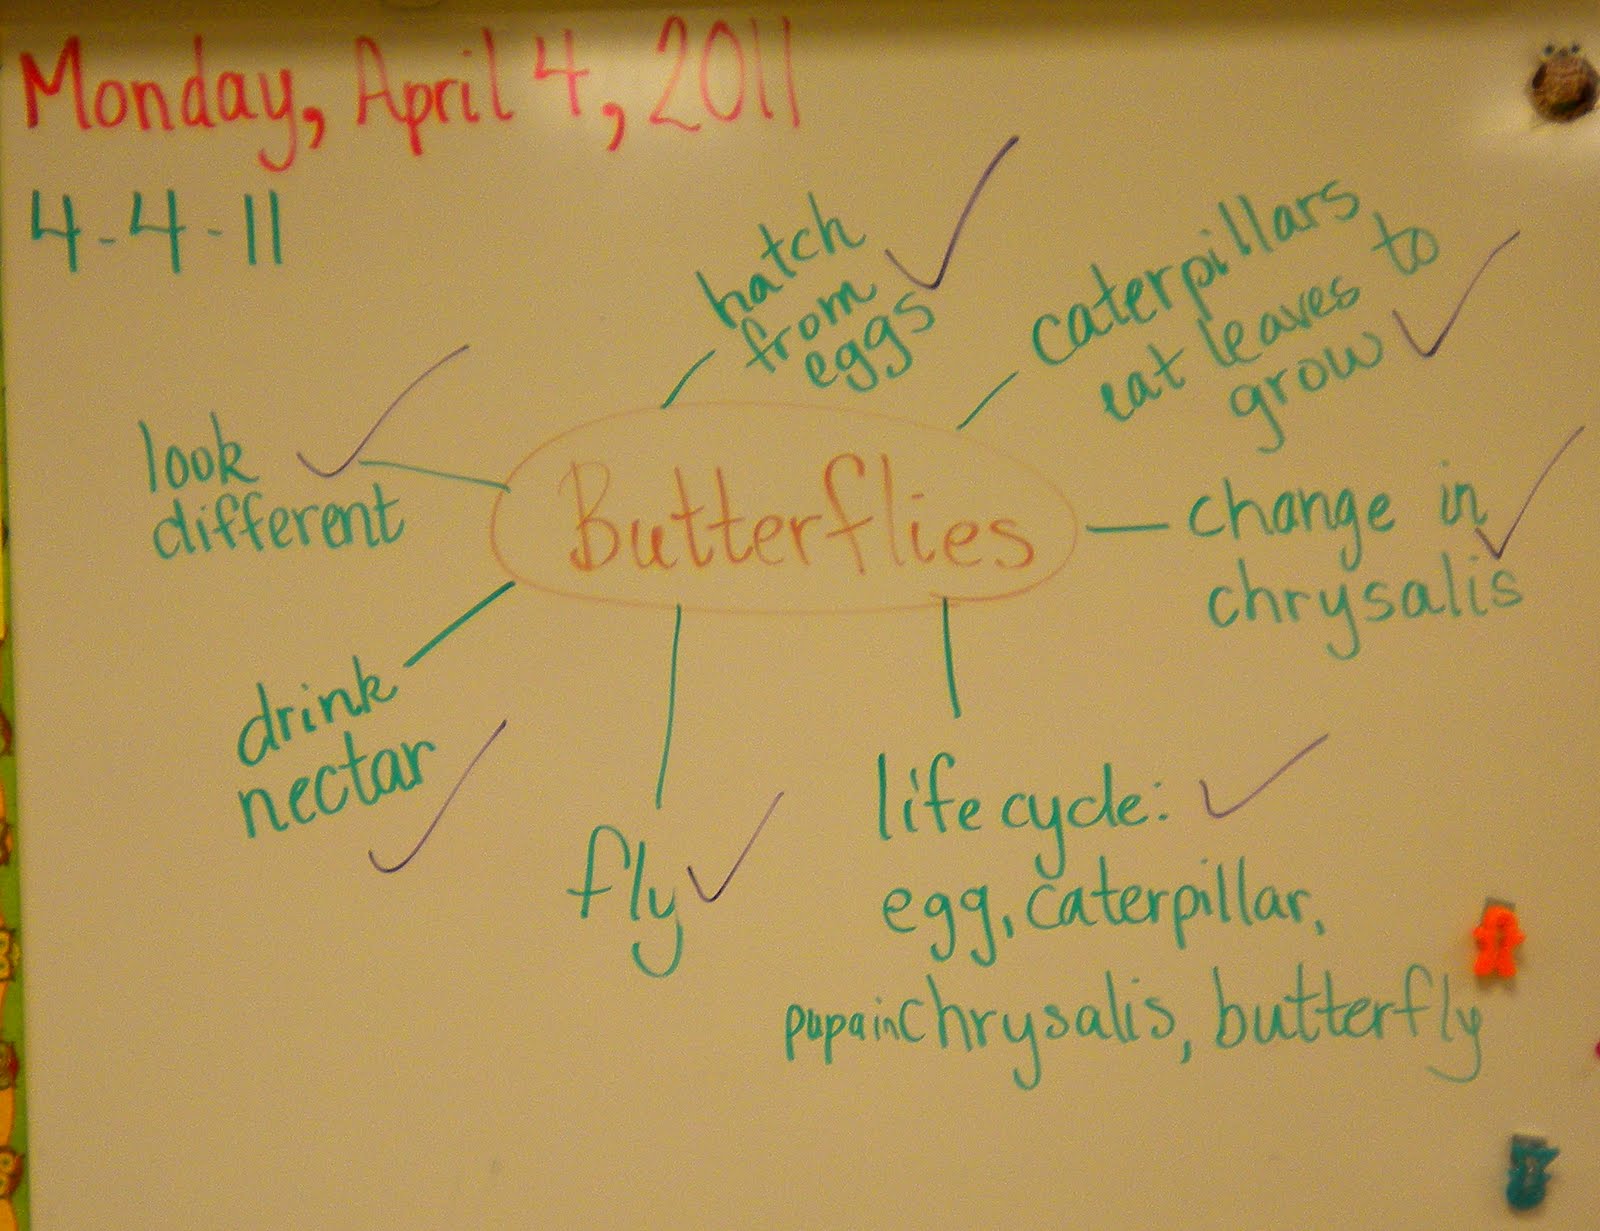 Monday, April 4, 2011
4-4-11
hatch
from
eggs
caterpillars
eat leaves to
grow
look
different
Butterflies
change in
chrysalis
drink
nectar
fly
life cycle:
egg, caterpillar,
pupa in chrysalis, butterfly